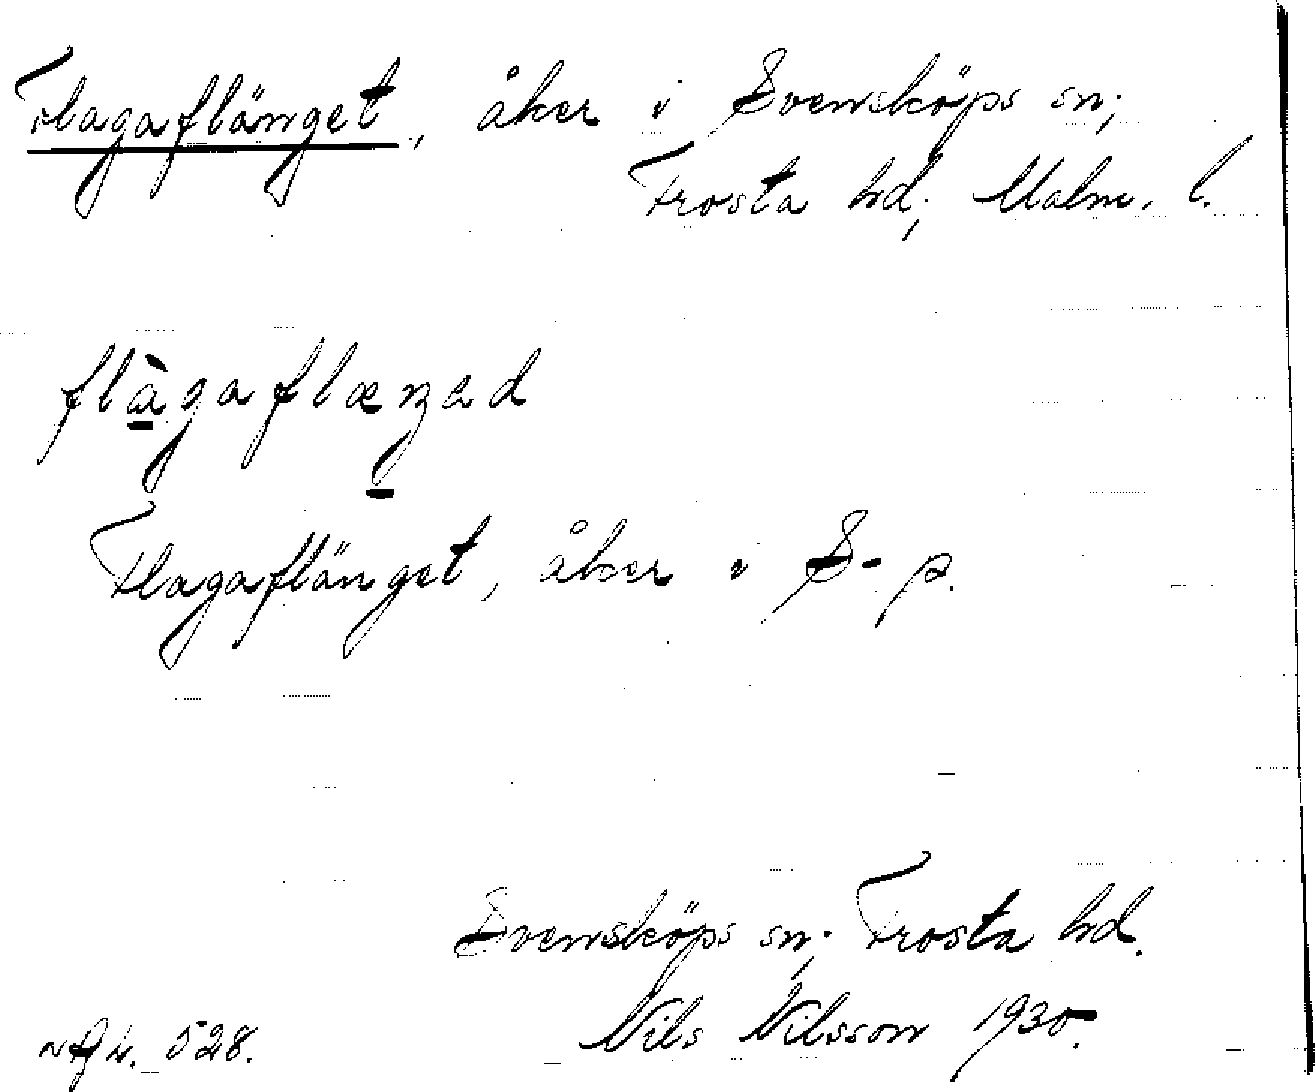 Flagaflänget, åker i Svensköps sn;
Frosta hd; Malm. l.
flàgaflæŋəd
Flagaflänget, åker i S-p.
Svensköps sn; Frosta hd.
Nils Nilsson 1930.
528.